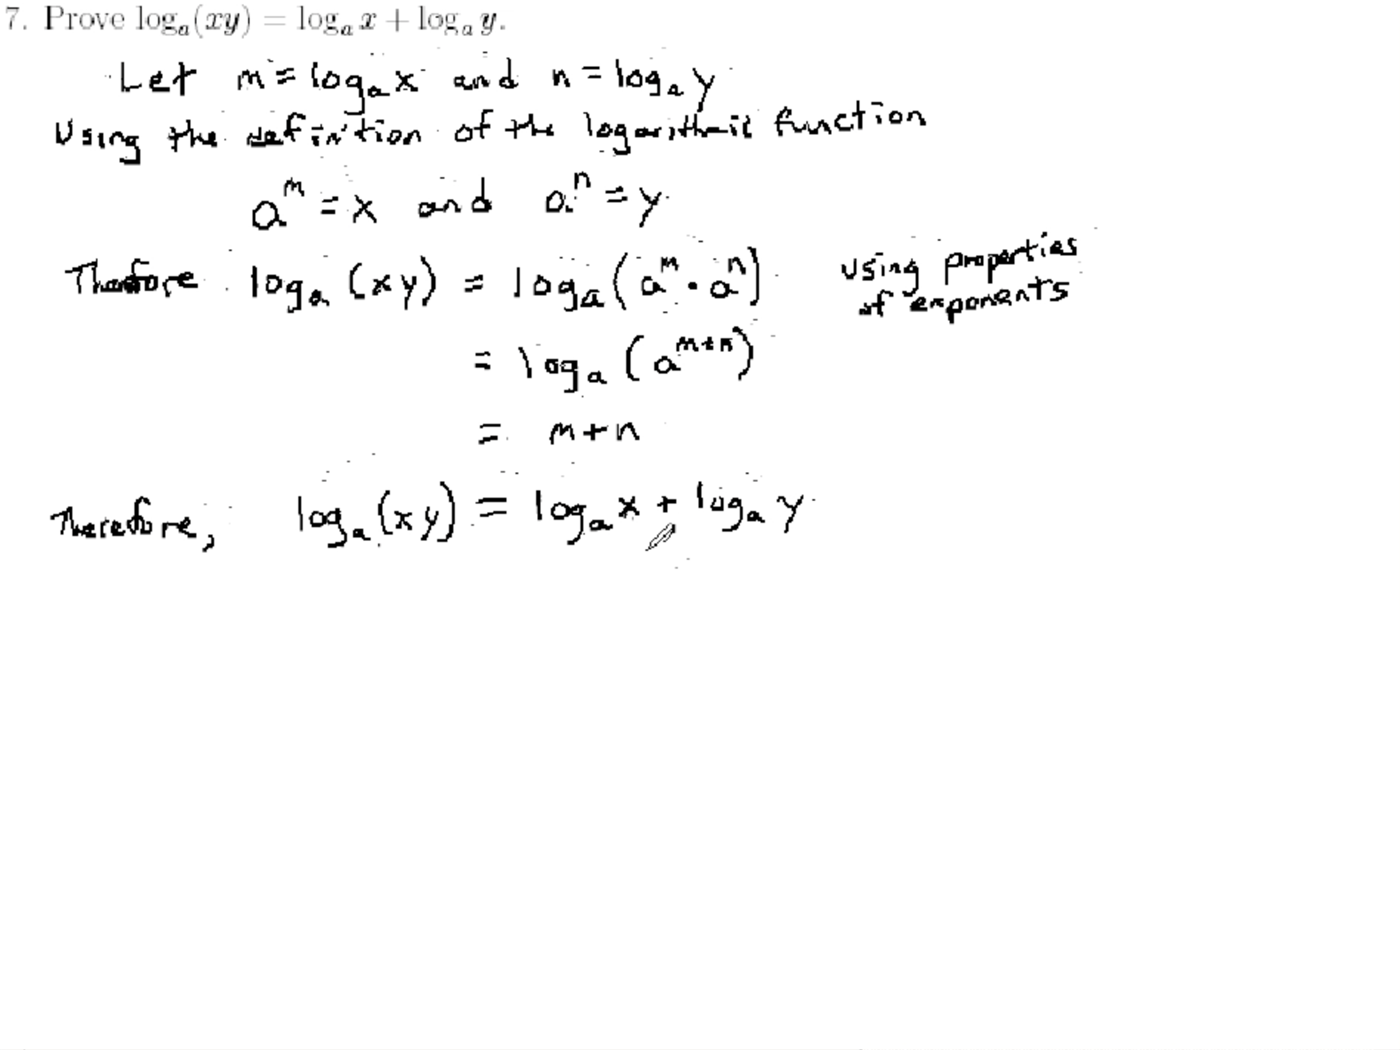 7. Prove logₐ(xy) = logₐ x + logₐ y.
Let m = logₐ x and n = logₐ y
Using the definition of the logarithmic function
aᵐ = x and aⁿ = y
Therefore logₐ (xy) = logₐ (aᵐ · aⁿ) using properties
of exponents
= logₐ (aᵐ⁺ⁿ)
= m+n
Therefore, logₐ (xy) = logₐ x + logₐ y